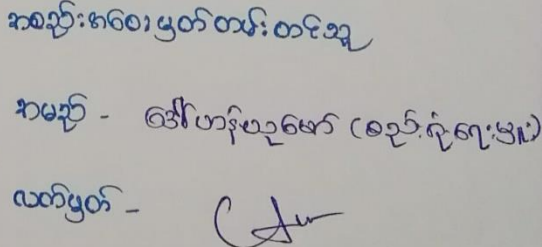 အစည်းအဝေးမှတ်တမ်းတင်သူ
အမည် - ဒေါ်ဟာန်ယဉ်မော် (စည်းရုံးရေးမှူး)
လက်မှတ် -